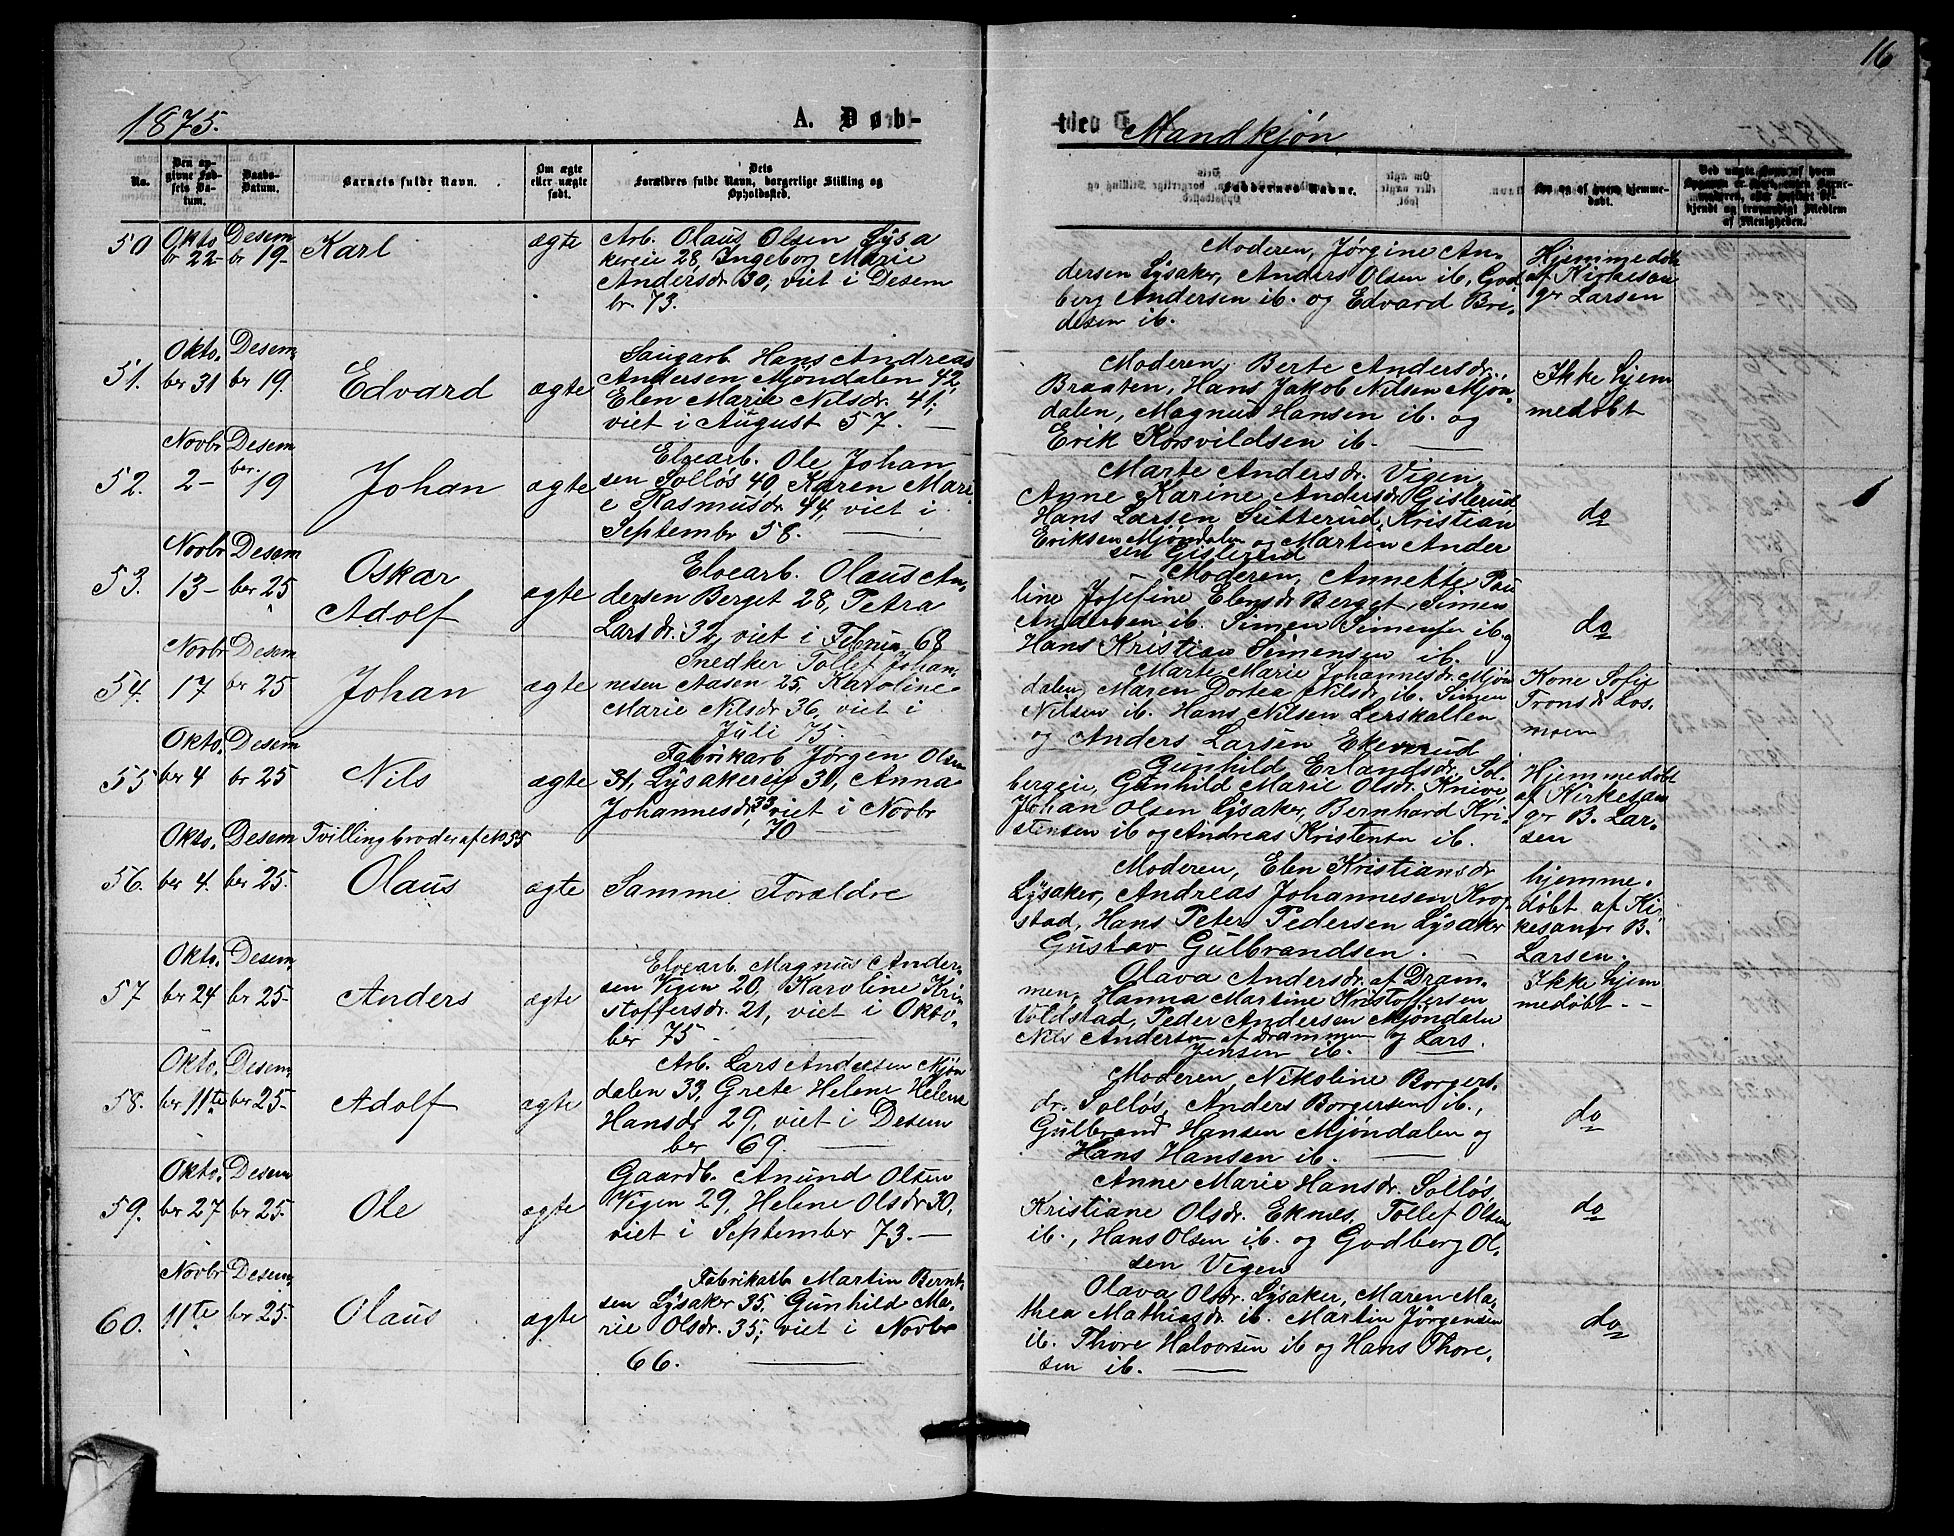 16
1875.
A. Døb-
te.
Mandkjøn
No.
Den op-
givne Fød-
sels Da-
tum.
Daabs-
Datum.
Barnets fulde Navn.
Om ægte
eller uægte
født.
Dets
Forældres fulde Navn, borgerlige Stilling og
Opholdssted.
Faddernes Navne.
Om og af hvem hjemme-
døbt.
50
Okto
br 22-
Desem
br 19-
Karl
ægte
Arb. Olaus Olsen Lysa
kereie 28, Ingeborg Marie
Andersdr 30, viet i Desem
br 73.
Moderen, Jørgine An-
dersen Lysaker, Anders Olsen ib, God
berg Andersen ib. og Edvard Bri-
desen ib.
Hjemmedøbt
af Kirkesan
gr Larsen
51.
Okto.
ber 31
Desem
br 19.
Edvard
ægte
Saugarb. Hans Andreas
Andersen Mjøndalen 42,
Elen Marie Nilsdr. 41,
viet i August 57. —
Moderen, Berte Andersdr.
Braaten, Hans Jakob Nilsen Mjøn
dalen, Magnus Hansen ib. og
Erik Korsvildsen ib. —
Ikke hjem
medøbt
52.
Novbr
2-
Desem
ber. 19
Johan
ægte
Elvearb. Ole Johan
sen Solløs 40 Karen Mari
e Rasmusdr 44, viet i
Septembr 58. —
Marte Andersdr. Vigen,
Anne Karine Andersdr Gislerud
Hans Larsen Sutterud, Kristian
Eriksen Mjøndalen og Martin Ander
sen Gislerud
do
53.
Novbr
13-
Desem
ber 25
Oskar
Adolf
ægte
Elvearb. Olaus An-
dersen Berget 28, Petra
Larsdr. 32, viet i Februar 68
Moderen, Annette Pau
line Josefine Elensdr Berget, Simen
Andersen ib. Simen Simensen ib. og
Hans Kristian Simensen ib.
do
54.
Novbr
17
Desem
br 25
Johan
ægte
Snedker Tollef Johan-
nesen Aasen 25, Karoline
Marie Nilsdr 36, viet i
Juli 75.
Marte Marie Johannesdr. Mjøn
dalen, Maren Dortea Nilsdr, ib. Simen
Nilsen ib. Hans Nilsen Lerskallen
og Anders Larsen Ekeverud
Kone Sofie
Tronsdr Los-
moen
55
Okto.
ber 4
Desem
br 25
Nils
ægte
Fabrikarb Jørgen Olsen
31, Lysakereie 31, Anna
Johannesdr 33 viet i Novbr
70
Gunhild Erlandsdr. Sol
bergeie, Gunhild Marie Olsdr. Knive
Johan Olsen Lysaker, Bernhard Kri-
stensen ib og Andreas Kristensen ib.
Hjemmedøbt
af Kirkesan
gr B. Lar-
sen
56.
Okto.
ber 4.
Desem
ber 25.
Tvillingbroder af No 55
Olaus
ægte
Samme Forældre
Moderen, Elen Kristiansdr
Lysaker, Andreas Johannesen Krog
stad, Hans Peter Pedersen Lysaker
Gustav Gulbrandsen.
hjemme.
døbt af Kir
kesangr B.
Larsen.
57
Okto.
ber 24
Desem.
br 25-
Anders
ægte
Elvearb. Magnus Ander-
sen Vigen 20, Karoline Kri
stoffersdr. 21, viet i Okto-
ber 75 -
Olava Andersdr. af Dram-
men, Hanna Martine Kristoffersen
Voldstad, Peder Andersen Mjøndalen
Nils Andersen af Drammen og Lars
Jensen ib.
Ikke hjem
medøbt. -
58.
Okto.
ber 11te
Desem.
ber 25-
Adolf
ægte
Arb. Lars Andersen Mjøn
dalen 33, Grete Helene Helene
Hansdr 29, viet i Desem
ber 69. —
Moderen, Nikoline Borgers
dr. Solløs, Anders Borgersen ib.,
Gulbrand Hansen Mjøndalen og
Hans Hansen ib. —
do
59.
Okto.
ber 27
Desem
br 25.
Ole
ægte
Gaardb. Anund Olsen
Vigen 29, Helene Olsdr 30,
viet i September 73. —
Anne Marie Hansdr. Solløs,
Kristiane Olsdr. Eknes, Tollef Olsen
ib., Hans Olsen ib. og Godberg Ol-
sen Vigen
do
60.
Novbr
11te
Desem.
br 25.
Olaus
ægte
Fabrikarb Martin Bernt-
sen Lysaker 35, Gunhild Ma-
rie Olsdr. 35, viet i Novbr
66. —
Olava Olsdr. Lysaker, Maren Ma-
thea Mathiasdr ib. Martin Jørgensen
ib. Thore Halvorsen ib og Hans Thore-
sen ib. —
do